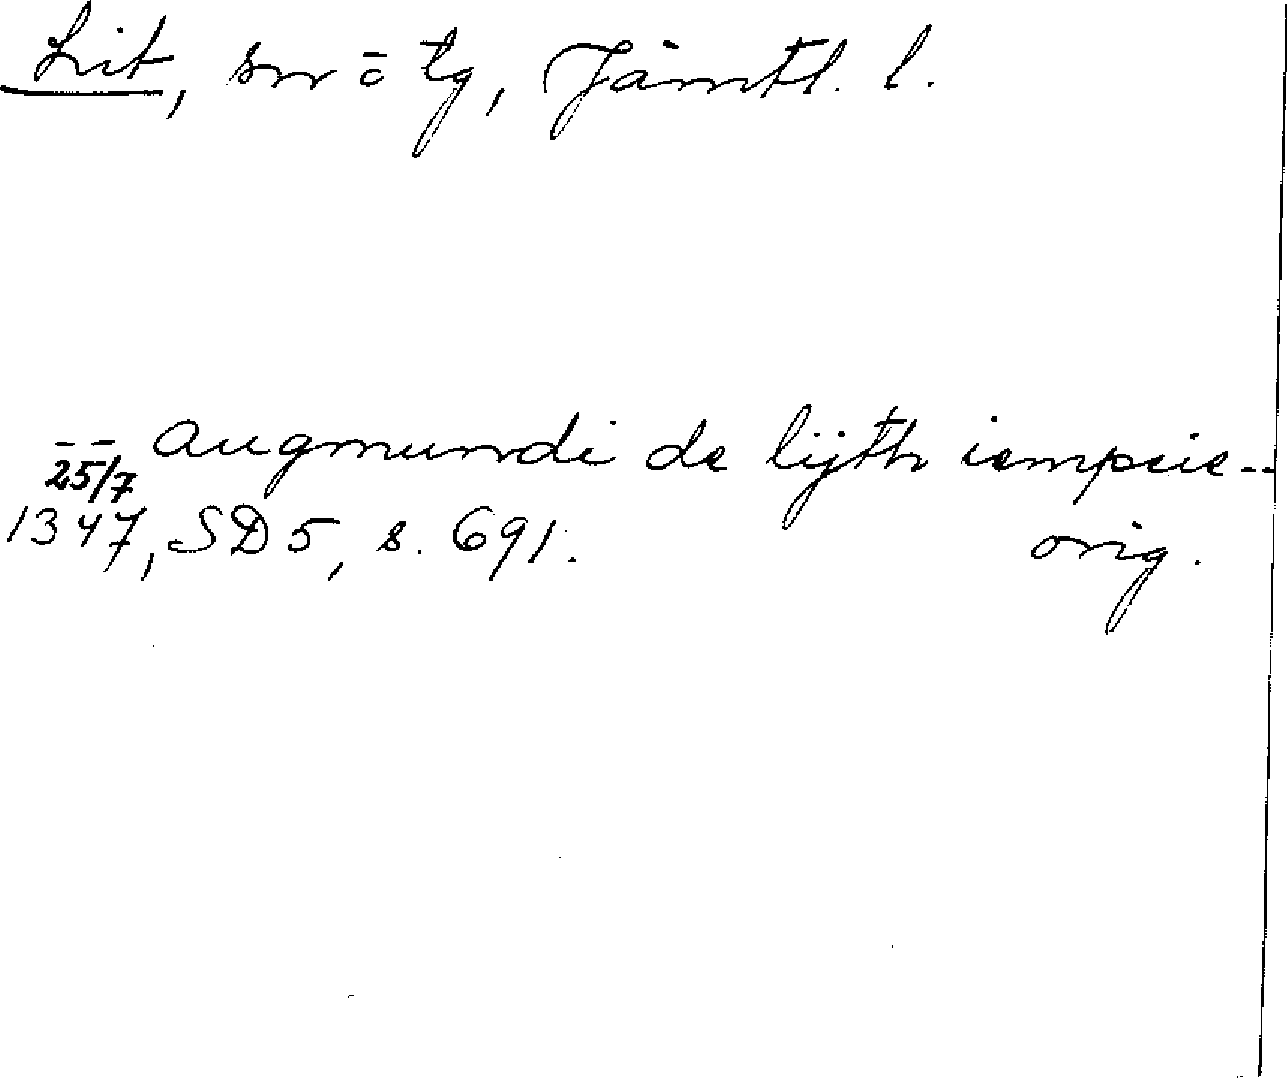 Lit, sn o tg, Jämtl. l.
-- augmundi de lijth iempcie --
25/7
1347, SD 5, s. 691. orig.